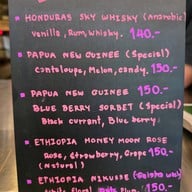 HONDURAS SKY WHISKY (Anarobic)
Vanilla, Rum, Whisky. 140.-
PAPUA NEW GUINEE (Special)
Cantaloupe, Melon, candy. 150.-
PAPUA NEW GUINEE 150.-
BLUE BERRY SORBET (Special)
Black currant, Blue berry
ETHIOPIA HONEY MOON ROSE
Rose, Strawberry, Grape 150.-
(Natural)
ETHIOPIA NIKUSSE
White Floral Plum. 150.-